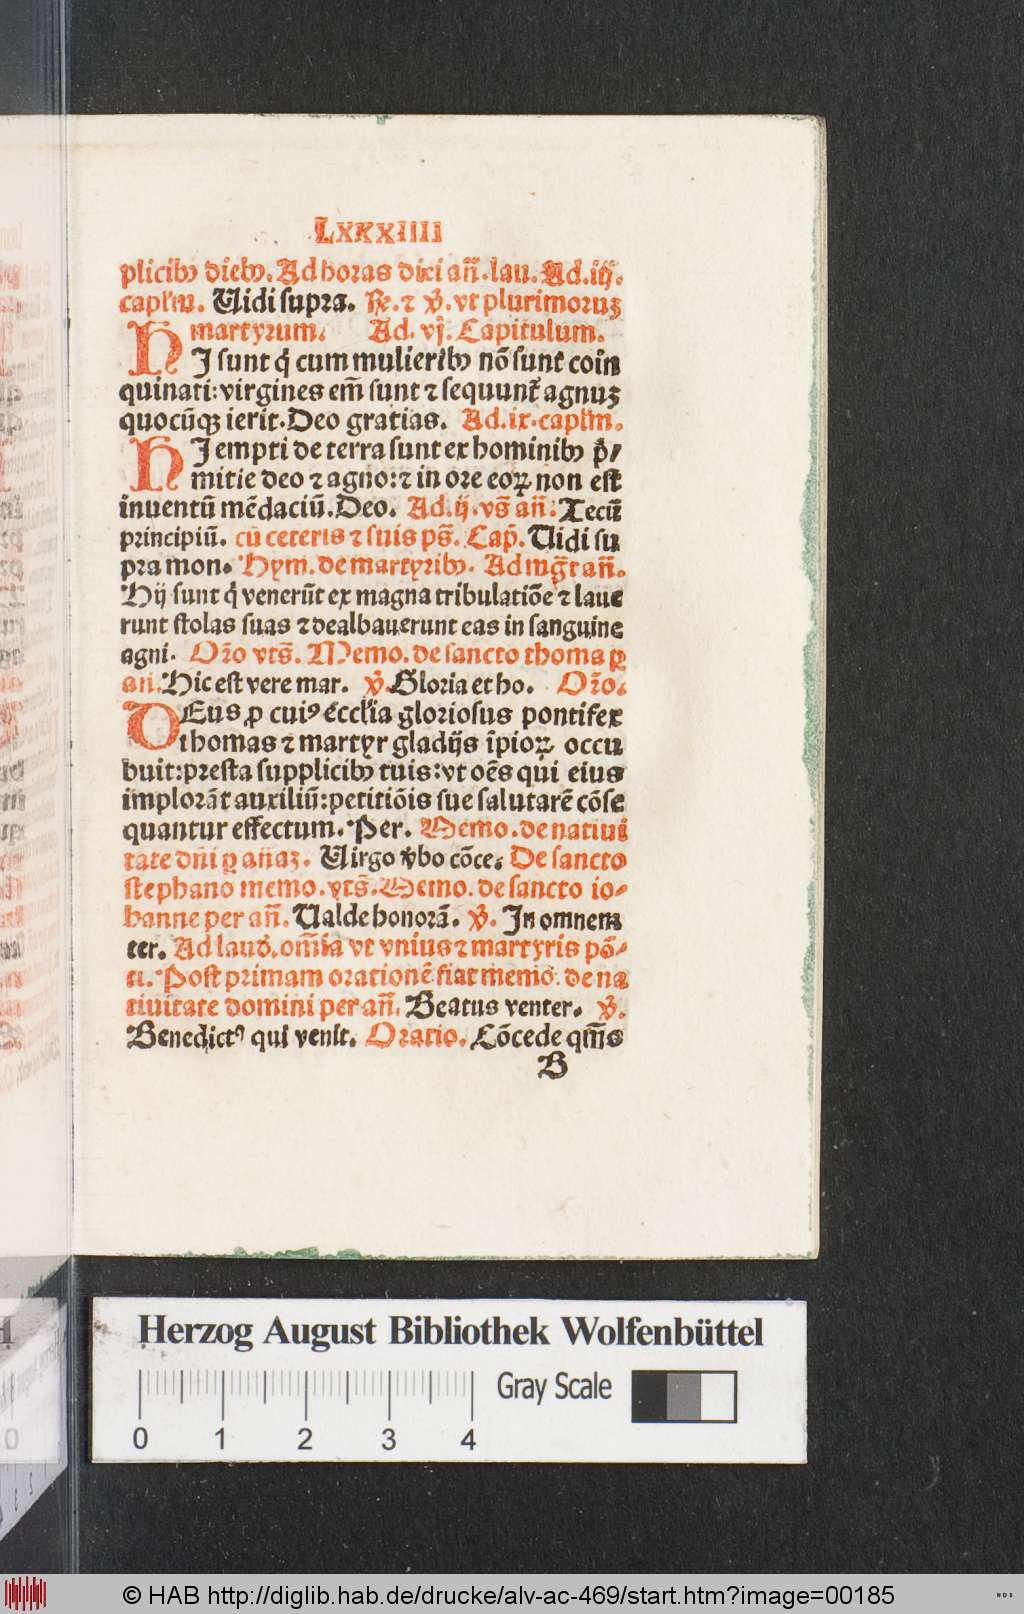 LXXXIIII
plicibꝰ diebꝰ. Ad horas dici añ. lau. Ad. iij.
caplm. Uidi supra. ꝶ. ⁊ ꝟ. vt plurimoruꝫ
martyrum. Ad. vj. Capitulum.
HI sunt q̇ cum mulieribꝰ nō sunt coin
quinati: virgines em̄ sunt ⁊ sequunt᷑ agnuꝫ
quocūqꝫ ierit. Deo gratias. Ad. ix. caplm.
HI empti de terra sunt ex hominibꝰ p̄/
mitie deo ⁊ agno: ⁊ in ore eoꝝ non est
inventū mēdaciū. Deo. Ad. ij. vs̄ añ: Tecū
principiū. cū ceteris ⁊ suis ps̄. Cap̄. Uidi su
pra mon. Hym. de martyribꝰ. Ad mg̅t añ.
Hij sunt q̇ venerūt ex magna tribulatiōe ⁊ laue
runt stolas suas ⁊ dealbauerunt eas in sanguine
agni. Oro vts̄. Memo. de sancto thoma ꝑ
an. Hic est vere mar. ꝟ. Gloria et ho. Oro.
DEus ꝓ cuiꝰ ecclia gloriosus pontifex
thomas ⁊ martyr gladijs īpioꝝ occu
buit: presta supplicibꝰ tuis: vt oēs qui eius
implorāt auxiliū: petitiōis sue salutarē cōse
quantur effectum. Per. Memo. de natiui
tate dn̄i ꝑ añaꝫ. Uirgo v̄bo cōce. De sancto
stephano memo. vts̄. Memo. de sancto io-
hanne per añ. Ualde honorā. ꝟ. In omnem
ter. Ad laud. om̄ia vt vnius ⁊ martyris pō-
ti. Post primam orationē fiat memo. de na
tiuitate domini per añ. Beatus venter. ꝟ.
Benedictꝰ qui venit. Oratio. Cōcede qm̄s
B
Herzog August Bibliothek Wolfenbüttel
Gray Scale
0 1 2 3 4
© HAB http://diglib.hab.de/drucke/alv-ac-469/start.htm?image=00185